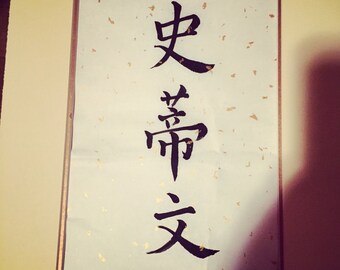 史蒂文